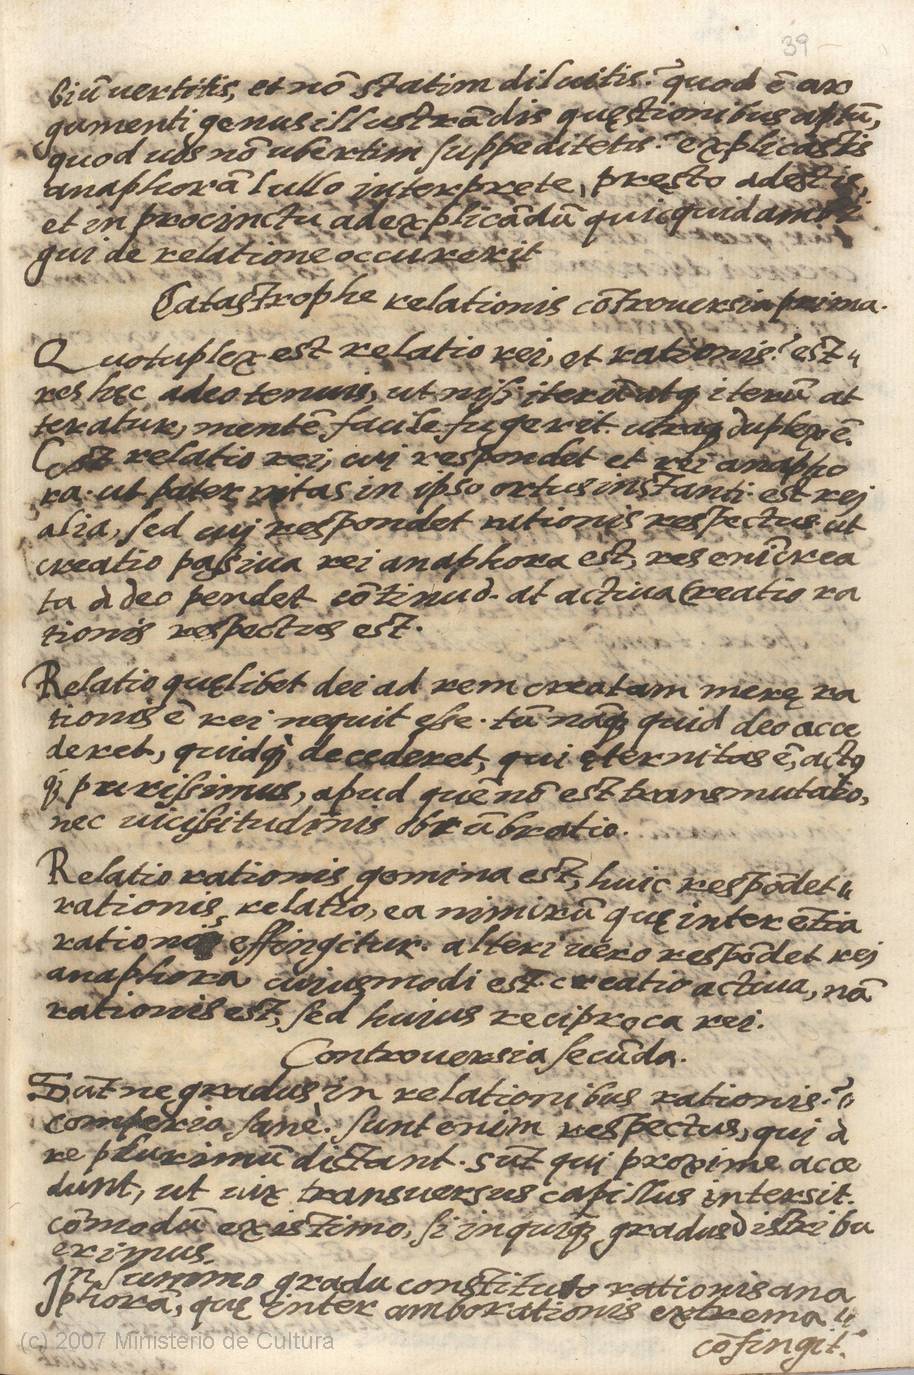 39
biū vertitis, et nō statim diluitis? quod ē ar
gumenti genus illustrādis quęstionibus aptū,
quod uos nō ubertim suppeditetis? explicastis
anaphorā lullo interprete, presto adestis,
et in procinctu ad explicādū quicquid ambi
gui de relatione occurerit
Catastrophe relationis cōtrouersia prima.
Quotuplex est relatio rei, et rationis? est
res hęc adeo tenuis, ut nisi iterū atq iterū at
teratur, mentē facile fugerit. utraq duplex ē.
Est relatio rei, cui respondet et rei anapho
ra. ut pater nitas in ipso ortus instanti. est rei
alia, sed cui respondet rationis respectus. ut
creatio passiua rei anaphora est, res enī crea
ta à deo pendet cōtinuò. at actiua Creatio ra
tionis respectus est.
Relatio quęlibet dei ad rem creatam merę ra
tionis ē rei nequit esse. tū nāq quid deo acce
deret, quidq decederet, qui ęternitas ē, actq
q purissimus, apud quē nō est transmutatio,
nec uicissitudinis obūbratio.
Relatio rationis gemina est, huic respōdet
rationis relatio, ea nimirū quę inter ētia
rationis effingitur. alteri uero respōdet rei
anaphora cuiusmodi est creatio actiua, nā
rationis est, sed huius reciproca rei.
Controuersia secūda.
Sūt ne gradus in relationibus rationis?
comperio sanè. sunt enim respectus, qui à
re plurimū distant. sūt qui proxime acce
dunt, ut uix transuersus capillus intersit.
cōmodū existimo, si in quīq gradus distribu
erimus.
In summo gradu constituto rationis ana
phorā, quę inter ambo rationis extrema
cōfingit.
(c) 2007 Ministerio de Cultura